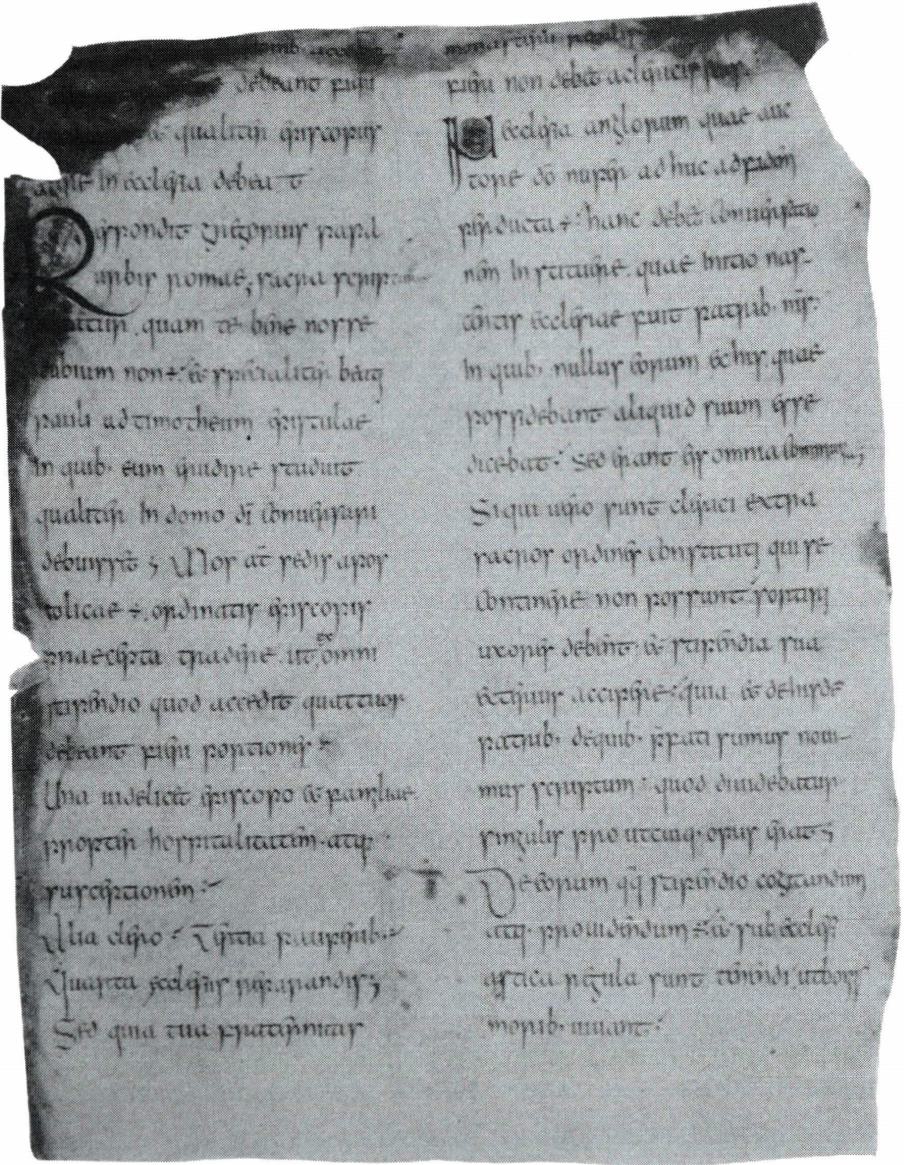 debeant fieri
& qualiter episcopus
in ecclesia debeat
Respondit gregorius papa
urbis romae, sacra scriptu
quam te bene nosse
dubium non ÷ & sp̄alit̄ beati
pauli ad timotheum epistulae
In quib· eum erudire studuit
qualiter In domo dī conuersari
debuisset ; Mos aū sedis apos
tolicae ÷ ordinatis episcopis
praecepta tradere ut ex omni
stipendio quod accedit quattuor
debeant fieri portiones
Una uidelicet episcopo & familiae
propter hospitalitatem atq·
susceptionem
Alia clero Tertia pauperib·
Quarta ecclesiis reparandis ;
Sed quia tua fraternitas
monasterii regulis
fieri non debet a clericis suis
In ecclesia anglorum quae auc
tore dō nuper adhuc ad fidem
perducta ÷ hanc debet conuersatio
nem Instituere quae Initio nas
centis ecclesiae fuit patrib· nr̄is
In quib· nullus eorum ex his quae
possidebant aliquid suum esse
dicebat Sed erant eis omnia communia ;
Siqui uero sunt clerici extra
sacros ordines constituti qui se
continere non possunt sortiri
uxores debent & stipendia sua
exterius accipere quia & de hisdē
patrib· de quib· p̄fati sumus noui
mus scriptum quod diuidebatur
singulis prout cuiq· opus erat ;
De eorum qq· stipendio cogitandum
atq· prouidendum ÷ & sub eccl̄esi
astica regula sunt tenendi ut bonis
morib· uiuant